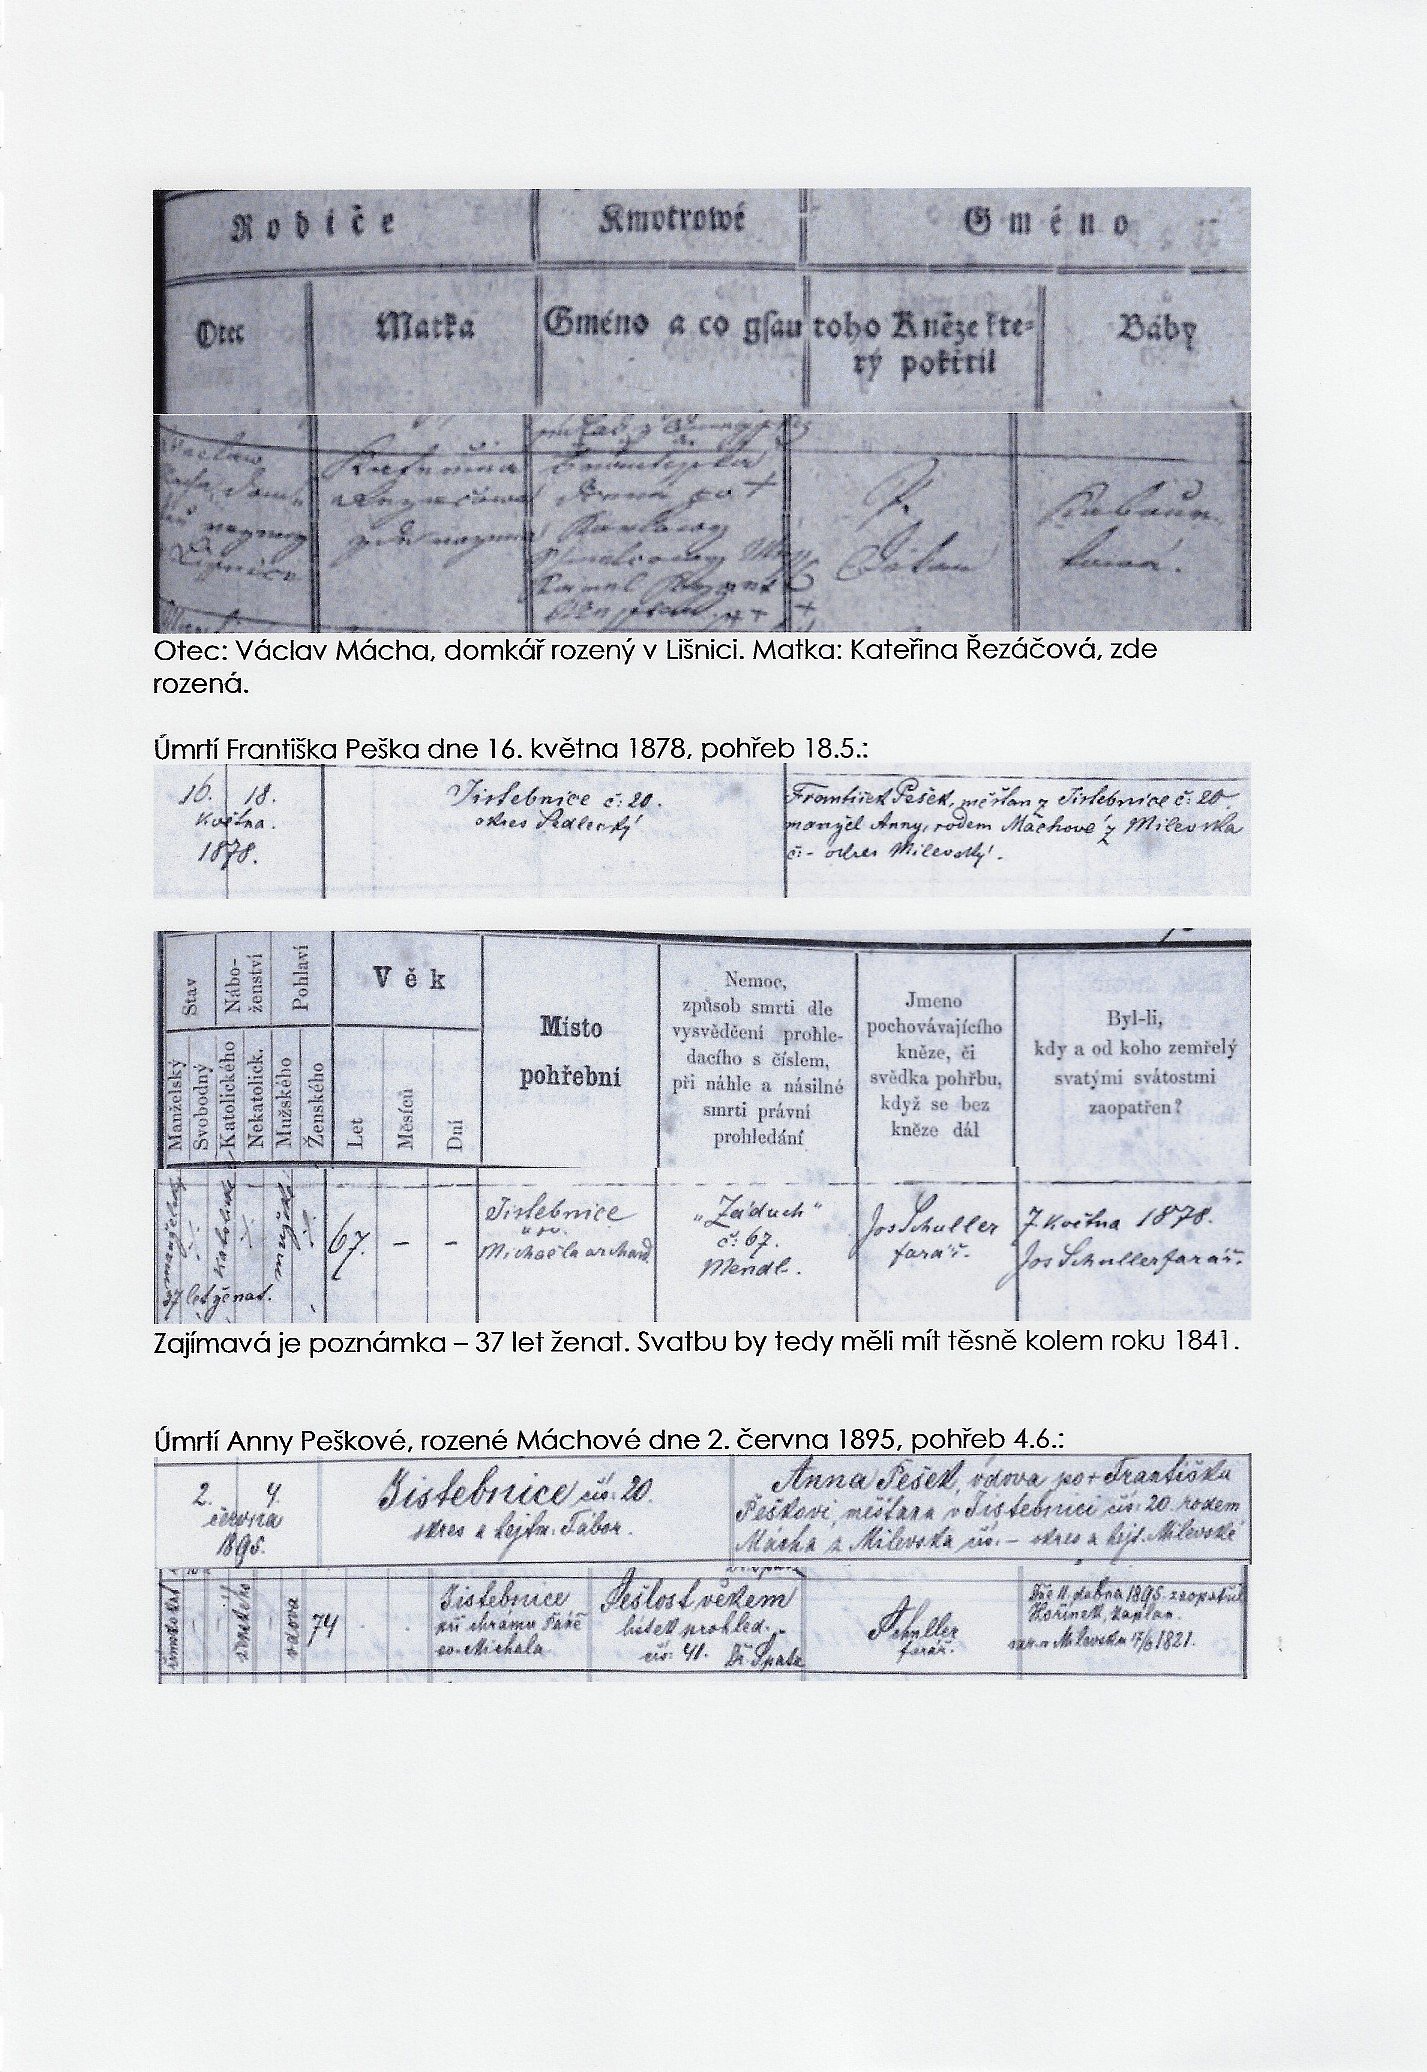 Rodiče Kmotrowé Gméno
Otec Matka Gméno a co gsau toho Kněze kte=
rý pokřtil Báby
Otec: Václav Mácha, domkář rozený v Lišnici. Matka: Kateřina Řezáčová, zde
rozená.
Úmrtí Františka Peška dne 16. května 1878, pohřeb 18.5.:
16. 18.
května.
1878.
Jistebnice č: 20.
okres Sedlecký
František Pešek, měšťan z Jistebnice č: 20.
manžel Anny, rodem Máchové z Milevska
č:- okres Milevský.
Stav
Nábo-
ženství
Pohlaví
Věk
Manželský
Svobodný
Katolického
Nekatolick.
Mužského
Ženského
Let
Měsíců
Dní
Místo
pohřební
Nemoc,
způsob smrti dle
vysvědčení prohle-
dacího s číslem,
při náhle a násilné
smrti právní
prohledání
Jmeno
pochovávajícího
kněze, či
svědka pohřbu,
když se bez
kněze dál
Byl-li,
kdy a od koho zemřelý
svatými svátostmi
zaopatřen?
manželský
katolické
mužské
37 let ženat.
67. – –
Jistebnice
Michaela archand
„Záduch“
č: 67.
Mendl.
Jos Schuller
farář.
7 května 1878.
Jos Schuller farář.
Zajímavá je poznámka – 37 let ženat. Svatbu by tedy měli mít těsně kolem roku 1841.
Úmrtí Anny Peškové, rozené Máchové dne 2. června 1895, pohřeb 4.6.:
2. 4.
června
1895.
Jistebnice čís: 20.
okres a hejtm. Tábor.
Anna Pešek, vdova po + Františku
Peškovi, měšťana v Jistebnici čís: 20. rodem
Mácha z Milevska čís. – okres a hejt. Milevské
ženského
vdova
74
Jistebnice
při chrámu
sv. Michala
Sešlost věkem
lístek prohled.
čís: 41. Dr. Špala
Schuller
farář.
Dne 11. dubna 1895. zaopatřil
Hořínek, kaplan.
nar. v Milevsku 17/6 1821.